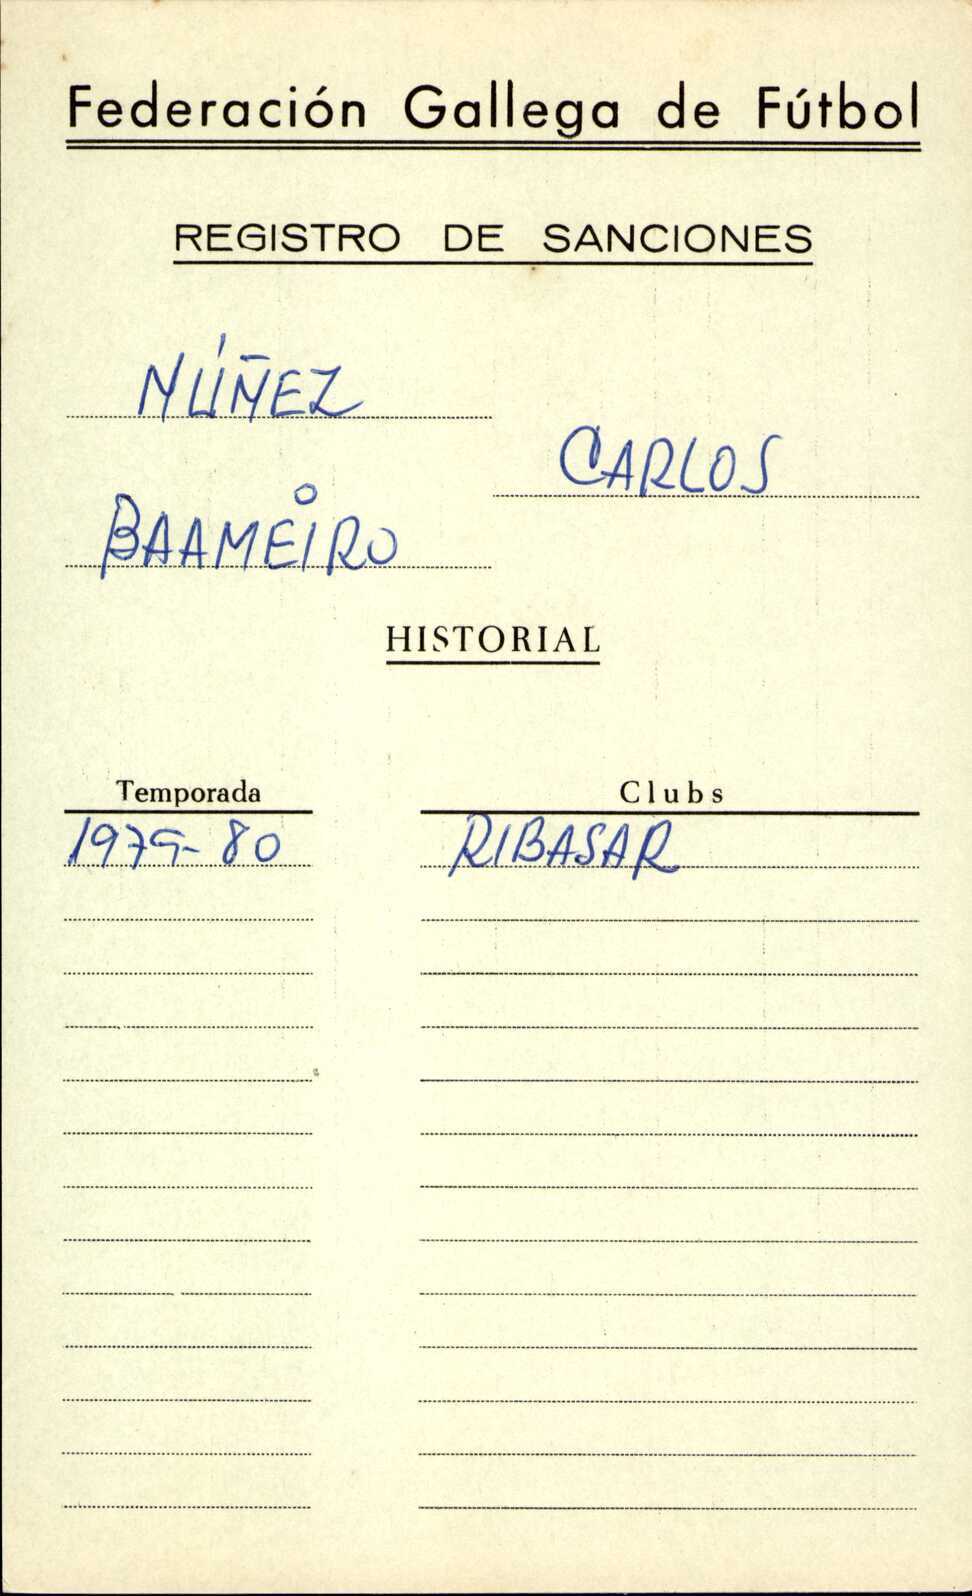 Federación Gallega de Fútbol
REGISTRO DE SANCIONES
NÚÑEZ
CARLOS
BAAMEIRO
HISTORIAL
Temporada Clubs
1979-80 RIBASAR